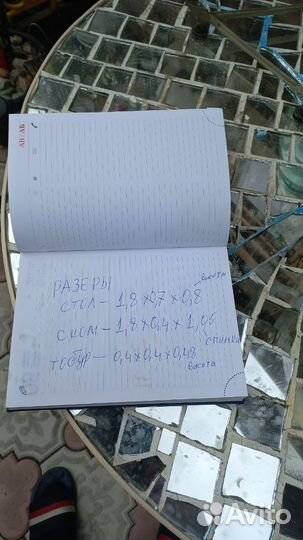 АН АБ
РАЗЕРЫ
высота
СТОЛ — 1,8 × 0,7 × 0,8
СКОМ — 1,8 × 0,4 × 1,05
СПИНКА
ТОБУР — 0,4 × 0,4 × 0,48
высота
Avito